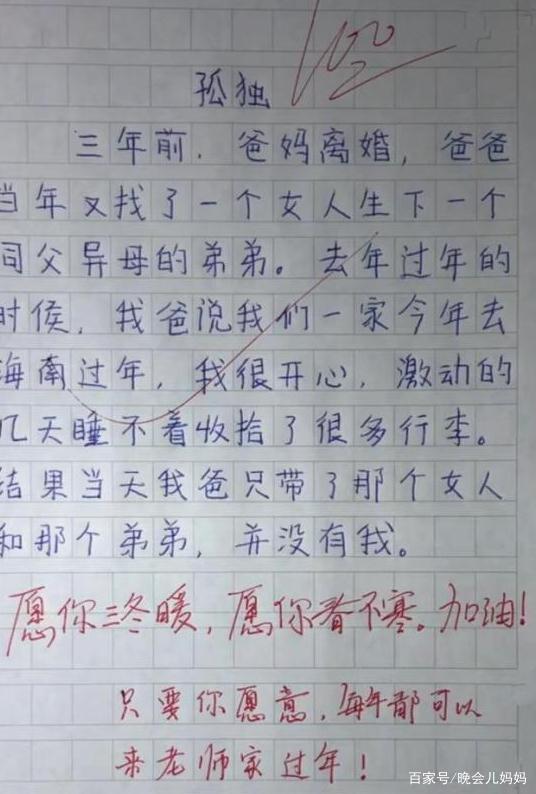 100
孤独
三年前，爸妈离婚，爸爸
当年又找了一个女人生下一个
同父异母的弟弟。去年过年的
时侯，我爸说我们一家今年去
海南过年，我很开心，激动的
几天睡不着收拾了很多行李。
结果当天我爸只带了那个女人
和那个弟弟，并没有我。
愿你三冬暖，愿你春不寒。加油！
只要你愿意，每年都可以
来老师家过年！
百家号/晚会儿妈妈